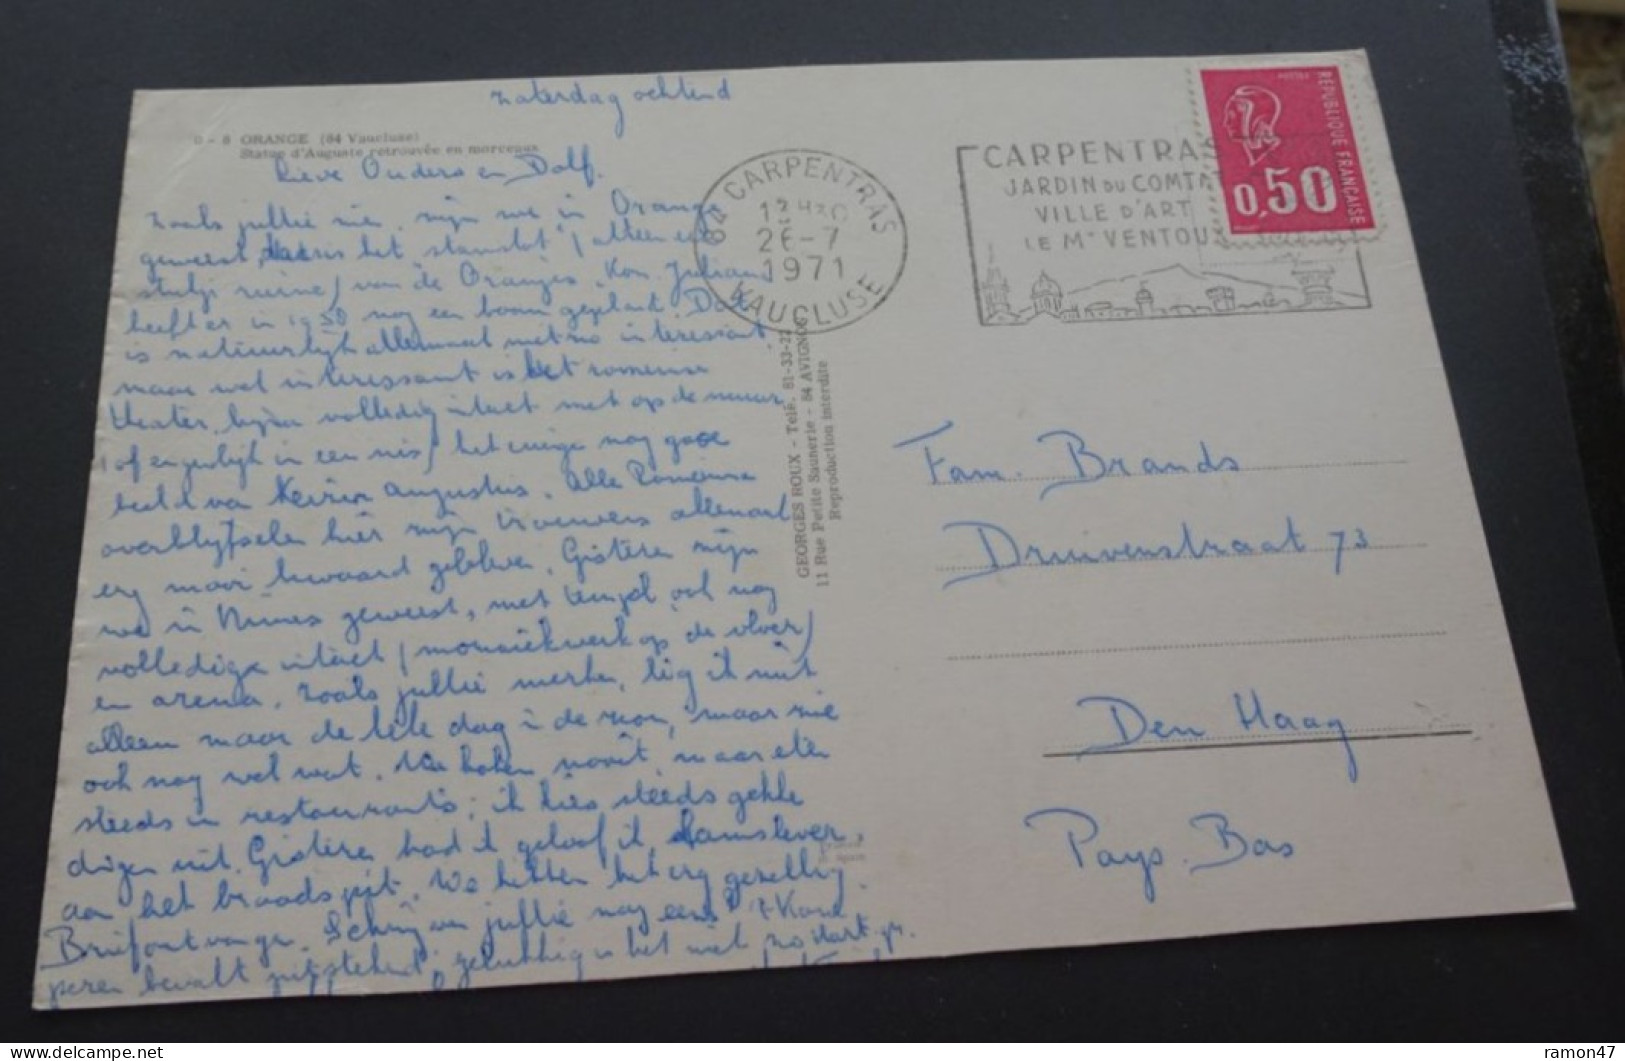 zaterdag ochtend
D - 8 ORANGE (84 Vaucluse)
Statue d'Auguste retrouvée en morceaux
Lieve Ouders en Dolf.
zoals jullie zien, zijn we in Orange
geweest, daar is het stamslot (alleen een
stukje ruïne) van de Oranjes. Kon. Juliana
heeft er in 1950 nog een boom geplant. Dat
is natuurlijk allemaal niet zo interessant,
maar wel interessant is het romeinse
theater, bijna volledig intact met op de muur
of eigenlijk in een nis) het enige nog gave
beeld van Keizer Augustus. Alle Romeinse
overblijfselen hier zijn trouwens allemaal
erg mooi bewaard gebleven. Gisteren zijn
we in Nimes geweest, met tempel ook nog
volledig intact (mozaiekwerk op de vloer)
en arena. Zoals jullie merken, lig ik niet
alleen maar de hele dag in de zon, maar zie
ook nog wel wat. We koken nooit, maar eten
steeds in restaurants; ik kies steeds
dingen uit. Gisteren had ik geloof ik lamslever,
aan het braadspit. We hebben het erg gezellig.
Schrijven jullie nog eens? 't Kam
peren bevalt uitstekend, gelukkig is het niet zo
84 CARPENTRAS
26-7
1971
VAUCLUSE
CARPENTRAS
JARDIN DU COMTA
VILLE D'ART
LE Mt VENTOU
REPUBLIQUE FRANÇAISE
0,50
GEORGES ROUX - Télé. 81-33-22
11 Rue Petite Saunerie - 84 AVIGNON
Reproduction interdite
Fam. Brands
Druivenstraat 73
Den Haag
Pays-Bas
ramon47